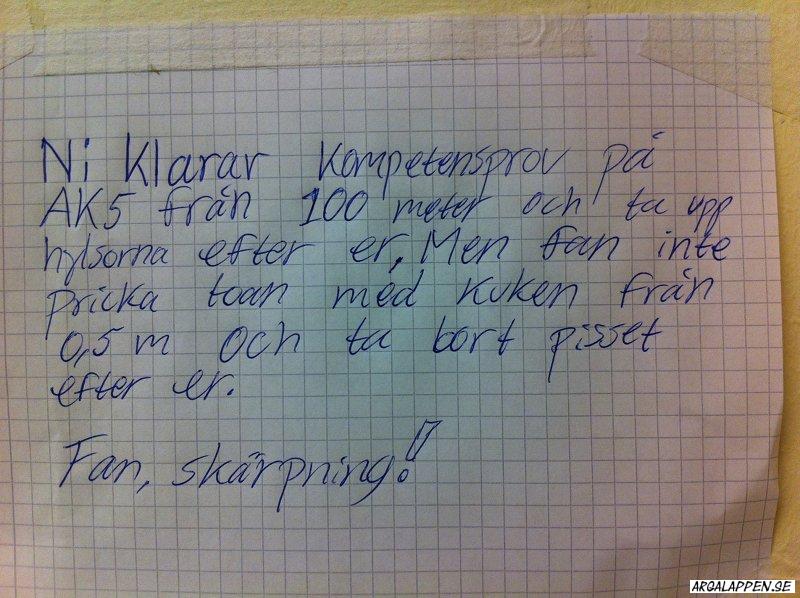 Ni klarar kompetensprov på
AK5 från 100 meter och ta upp
hylsorna efter er. Men fan inte
pricka toan med kuken från
0,5 m och ta bort pisset
efter er.
Fan, skärpning!
ARGALAPPEN.SE